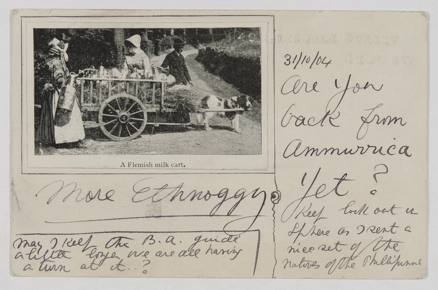 A Flemish milk cart.
More Ethnoggy.
May I keep the B.A. guide
a little longer we are all having
a turn at it..?
31/10/04
Are you
back from
Ammurrica
Yet?
Keep look out in
Sphere as I sent a
nice set of the
Natives of the Phillipines